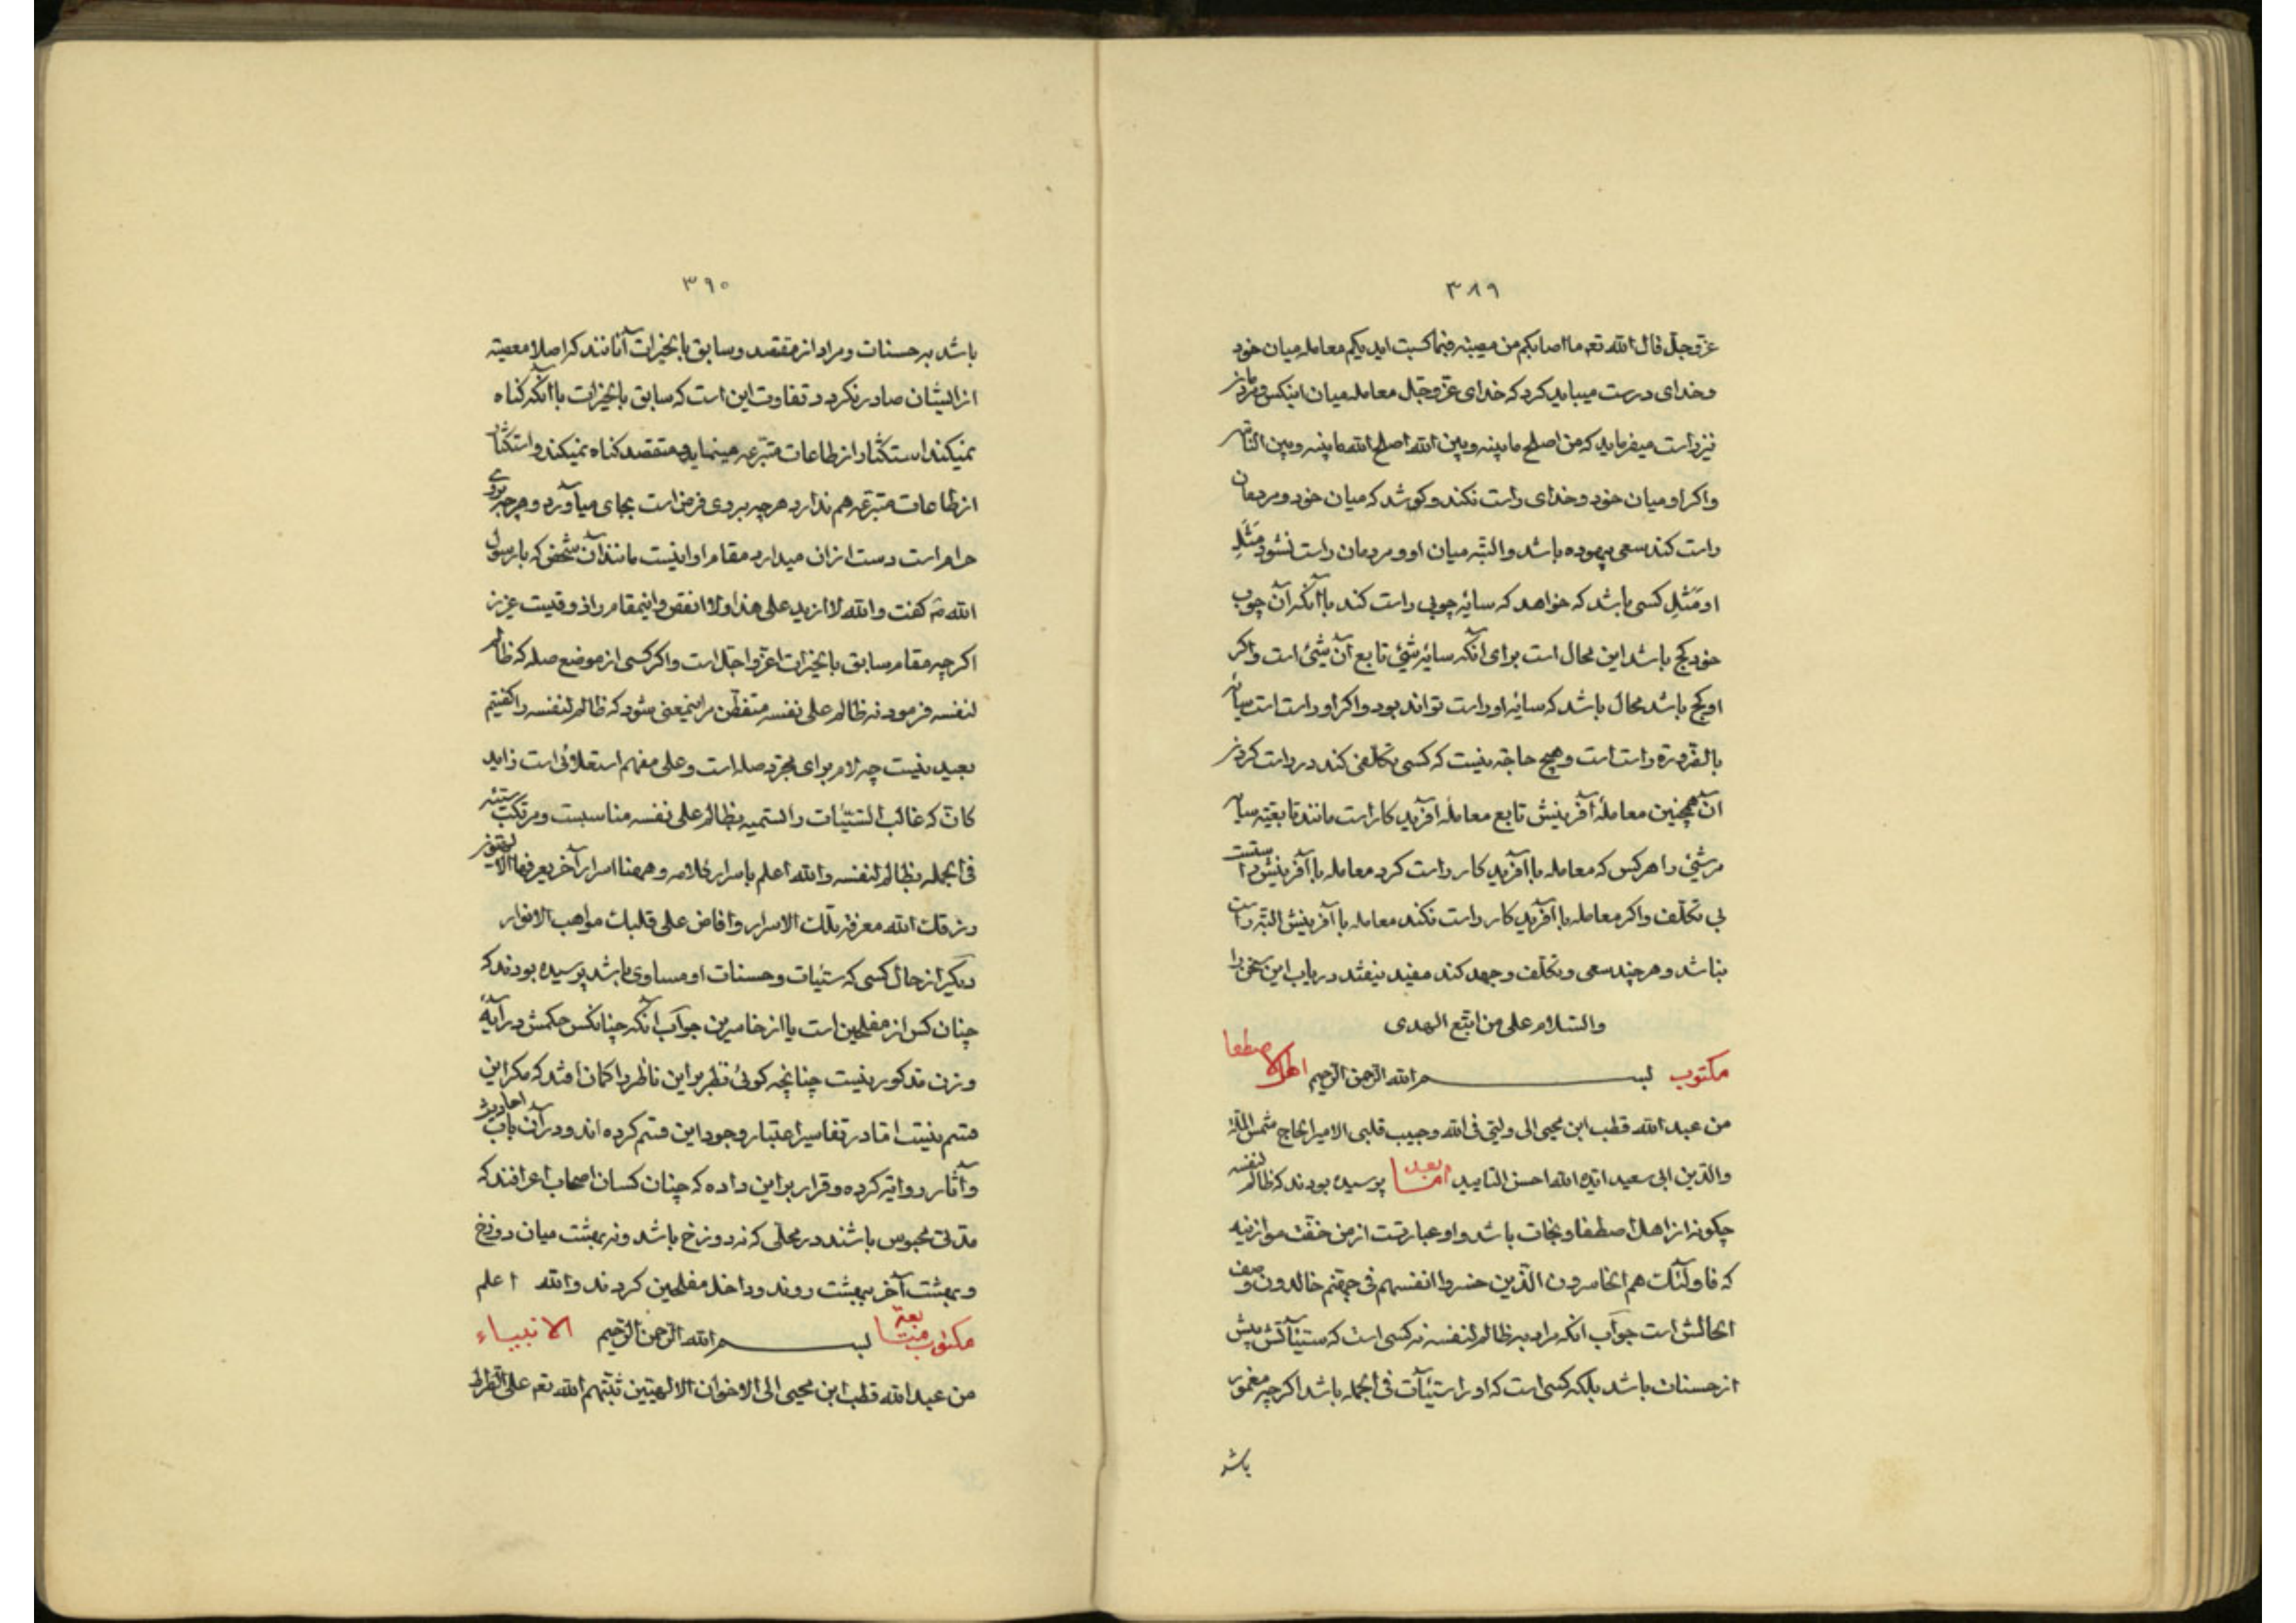 ۳۸۹
عز و جل قال الله تعه ما اصابکم من مصیبة فبما کسبت ایدیکم معامله میان خود
و خدای درست میباید کرد که خدای عز و جل معامله میان اینکس و مردمان
نیز راست میفرماید که من اصلح ما بینه و بین الله اصلح الله ما بینه و بین الناس
و اکر او میان خود و خدای راست نکند و کوشد که میان خود و مردمان
راست کند سعی بیهوده باشد و البته میان او و مردمان راست نشود مَثَلِ
او مَثَلِ کسی باشد که خواهد که سایهٔ چوبی راست کند با آنکه آن چوب
خود کج باشد این محال است برای آنکه سایهٔ شیئ تابع آن شیئ است و اکر
او کج باشد محال باشد که سایهٔ او راست تواند بود و اکر او راست است سایهٔ
بالضرورة راست است و هیچ حاجة نیست که کسی تکلفی کند در راست کردن
آن همچنین معاملهٔ آفرینش تابع معاملهٔ آفریدکار است مانند تابعیة سایه
مر شیئ را هر کس که معامله با آفریدکار راست کرد معامله با آفرینش راست
بی تکلف و اکر معامله با آفریدکار راست نکند معامله با آفرینش البته راست
نباشد و هر چند سعی و تکلف و جهد کند مفید نیفتد دریاب این سخن را
والسّلام علی من اتبع الهدی
مکتوب بسم الله الرحمن الرحیم اهل اصطفا
من عبد الله قطب ابن محیی الی ولیّی فی الله و حبیب قلبی الامیر الحاج شمس الملة
والدّین ابی سعید ایّده الله احسن التایید امّا بعد پرسیده بودند که ظالم لنفسه
چکونه از اهل اصطفا و نجات باشد و او عبارتست از من خفّت موازینه
که فاولئک هم الخاسرون الّذین خسروا انفسهم فی جهنّم خالدون وصف
الحالش است جواب آنکه مراد به ظالم لنفسه نه کسی است که سیّئآتش بیش
از حسنات باشد بلکه کسی است که او را سیّئآت فی الجمله باشد اکرچه مغمور
باشد
۳۹۰
باشد به حسنات و مراد از مقتصد و سابق بالخیرات آنانند که اصلا معصیة
از ایشان صادر نکردد و تفاوت این است که سابق بالخیرات با آنکه کناه
نمیکند استکثار از طاعات متبرّعه مینماید و مقتصد کناه نمیکند و استکثار
از طاعات متبرّعه هم ندارد هرچه بر وی فرض است بجای میآورد و هرچه بر وی
حرام است دست از آن میدارد مقام او اینست مانند آن شخص که با رسول
الله صَ کفت والله لا ازید علی هذا و لا انقص و اینمقام را ذوقیست عزیز
اکرچه مقام سابق بالخیرات اعزّ و اجلّ است و اکر کسی از موضع صله که ظالم
لنفسه فرمود نه ظالم علی نفسه متفطّن مر اینمعنی شود که ظالم لنفسه را کفتیم
بعید نیست چه لام برای مجرّد صله است و علی مفهم استعلائی است زاید
کانّ که غالب السّیّئات را تسمیه بظالم علی نفسه مناسبست و مرتکب سیّئه
فی الجمله بظالم لنفسه والله اعلم باسرار کلامه و ههنا اسرار آخر یعرفها
رزقک الله معرفة تلک الاسرار و افاض علی قلبک مواهب الانوار
دیکر از حال کسی که سیّئات و حسنات او مساوی باشد پرسیده بودند که
چنان کس از مفلحین است یا از خاسرین جواب آنکه چنانکس حکمش در آیهٔ
وزن مذکور نیست چنانچه کوئی نظر بر این ناظر را کمان افتد که مکر این
قسم نیست امّا در تفاسیر اعتبار وجود این قسم کرده اند و در آن باب احادیث
و آثار روایة کرده و قرار بر این داده که چنان کسان اصحاب اعرافند که
مدّتی محبوس باشند در محلّی که نه دوزخ باشد و نه بهشت میان دوزخ
و بهشت آخر ببهشت روند و داخل مفلحین کردند والله اعلم
مکتوب متابعة بسم الله الرحمن الرحیم الانبیاء
من عبد الله قطب ابن محیی الی الاخوان الالهیّین ثبّتهم الله تعه علی الصّراط